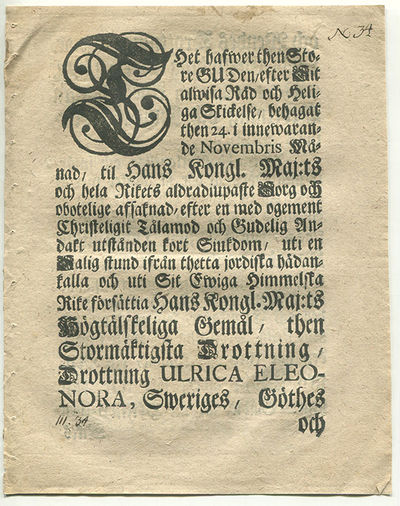 N 34
THet hafwer then Sto-
re GUDen/ efter Sit
alwisa Råd och Heli-
ga Skickelse, behagat
then 24 i innewaran-
de Novembris Må-
nad, til Hans Kongl. Maj:ts
och hela Rikets aldradiupaste Sorg och
obotelige afsaknad/ efter en med ogement
Christeligit Tålamod och Gudelig An-
dakt utstånden kort Siukdom, uti en
Salig stund ifrån thetta jordiska hådan-
kalla och uti Sit Ewiga Himmelska
Rike försättia Hans Kongl. Maj:ts
Högtälskeliga Gemål/ then
Stormäktigsta Drottning/
Drottning ULRICA ELEO-
NORA, Sweriges/ Göthes
och